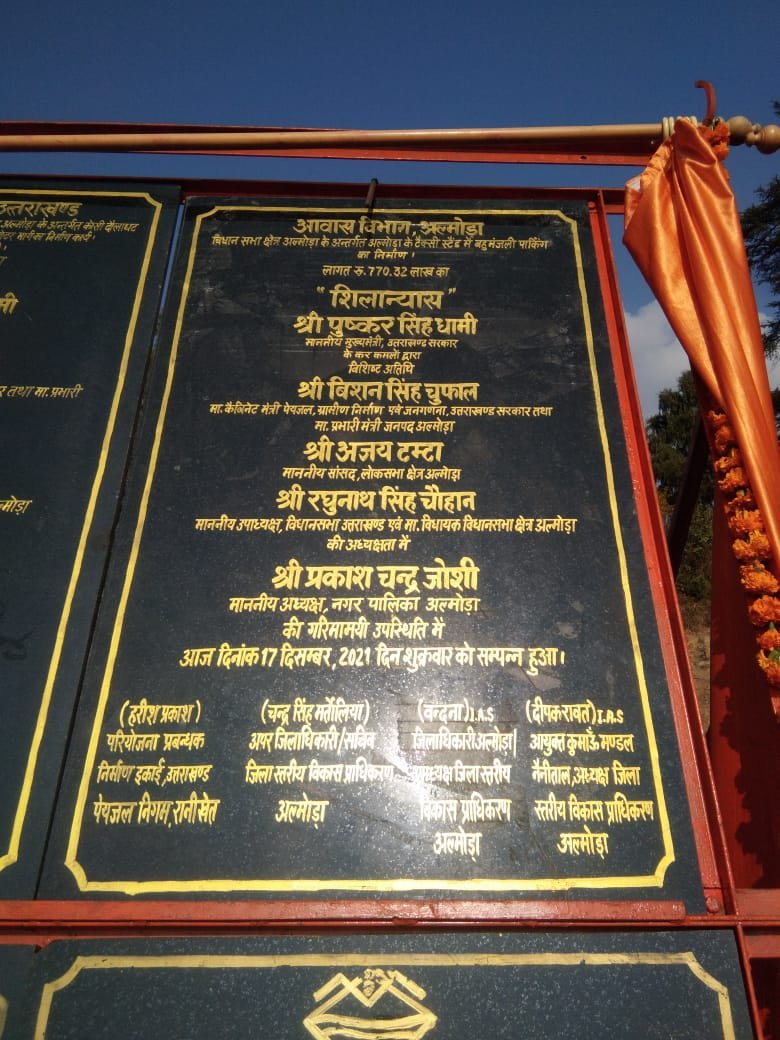 उत्तराखण्ड
अल्मोड़ा के अन्तर्गत
मी
र तथा मा.प्रभारी
मोड़ा
आवास विभाग, अल्मोड़ा
विधान सभा क्षेत्र अल्मोड़ा के अन्तर्गत अल्मोड़ा के टैक्सी स्टैंड में बहुमंजली पार्किंग
का निर्माण।
लागत रु.770.32 लाख का
"शिलान्यास"
श्री पुष्कर सिंह धामी
माननीय मुख्यमंत्री, उत्तराखण्ड सरकार
के कर कमलों द्वारा
विशिष्ट अतिथि
श्री बिशन सिंह चुफाल
मा. कैबिनेट मंत्री पेयजल, ग्रामीण निर्माण एवं जनगणना, उत्तराखण्ड सरकार तथा
मा. प्रभारी मंत्री जनपद अल्मोड़ा
श्री अजय टम्टा
माननीय सांसद, लोकसभा क्षेत्र अल्मोड़ा
श्री रघुनाथ सिंह चौहान
माननीय उपाध्यक्ष, विधानसभा उत्तराखण्ड एवं मा. विधायक विधानसभा क्षेत्र अल्मोड़ा
की अध्यक्षता में
श्री प्रकाश चन्द्र जोशी
माननीय अध्यक्ष, नगर पालिका अल्मोड़ा
की गरिमामयी उपस्थिति में
आज दिनांक 17 दिसम्बर, 2021 दिन शुक्रवार को सम्पन्न हुआ।
(हरीश प्रकाश)
परियोजना प्रबन्धक
निर्माण इकाई, उत्तराखण्ड
पेयजल निगम, रानीखेत
(चन्द्र सिंह मर्तोलिया)
अपर जिलाधिकारी/सचिव
जिला स्तरीय विकास प्राधिकरण
अल्मोड़ा
(वन्दना) I.A.S
जिलाधिकारी अल्मोड़ा/
अध्यक्ष जिला स्तरीय
विकास प्राधिकरण
अल्मोड़ा
(दीपक रावत) I.A.S
आयुक्त कुमाऊँ मण्डल
नैनीताल, अध्यक्ष जिला
स्तरीय विकास प्राधिकरण
अल्मोड़ा